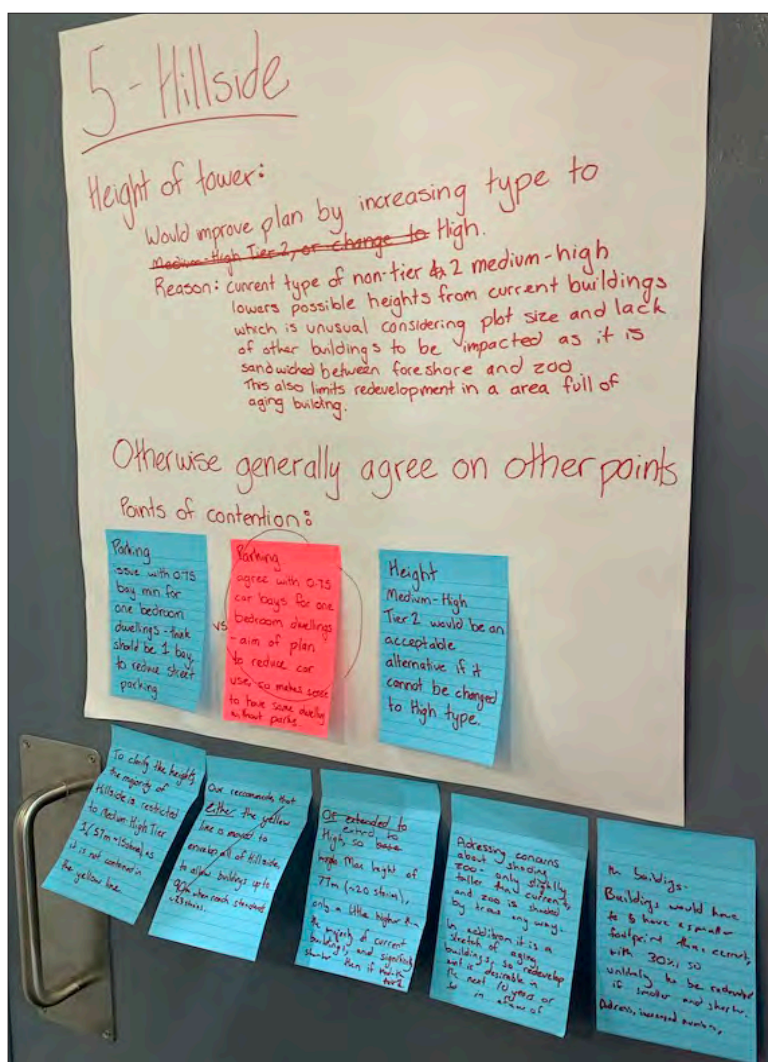 5 - Hillside
Height of tower:
Would improve plan by increasing type to
Medium-High Tier 2, or change to High.
Reason: current type of non-tier 2 medium-high
lowers possible heights from current buildings
which is unusual considering plot size and lack
of other buildings to be impacted as it is
sandwiched between foreshore and zoo
This also limits redevelopment in a area full of
aging building.
Otherwise generally agree on other points
Points of contention:
Parking
issue with 0.75
bay min for
one bedroom
dwellings - think
should be 1 bay,
to reduce street
parking
vs
Parking
agree with 0.75
car bays for one
bedroom dwellings
- aim of plan
to reduce car
use, so makes sense
to have some dwellings
without parks.
Height
Medium-High
Tier 2 would be an
acceptable
alternative if it
cannot be changed
to High type.
To clarify the heights,
the majority of
Hillside is restricted
to Medium High Tier
1 (57m ~15stories) as
it is not contained in
the yellow line.
Our recommends that
either the yellow
line is moved to
envelop all of Hillside,
to allow buildings up to
90m when reach standard
~23 stories.
Or extended to
High, so base
height Max height of
77m (~20 stories),
only a little higher than
the majority of current
buildings, and significantly
shorter than if
tier 2
Adressing concerns
about shading
zoo - only slightly
taller than current,
and zoo is shaded
by trees any way.
In addition it is a
stretch of aging
buildings, so redevelop
ment is desirable in
the next 10 years or
so in
buildings.
Buildings would have
to a smaller
footprint than current,
with 30%, so
unlikely to be redeveloped
if smaller and shorter.
increased numbers,